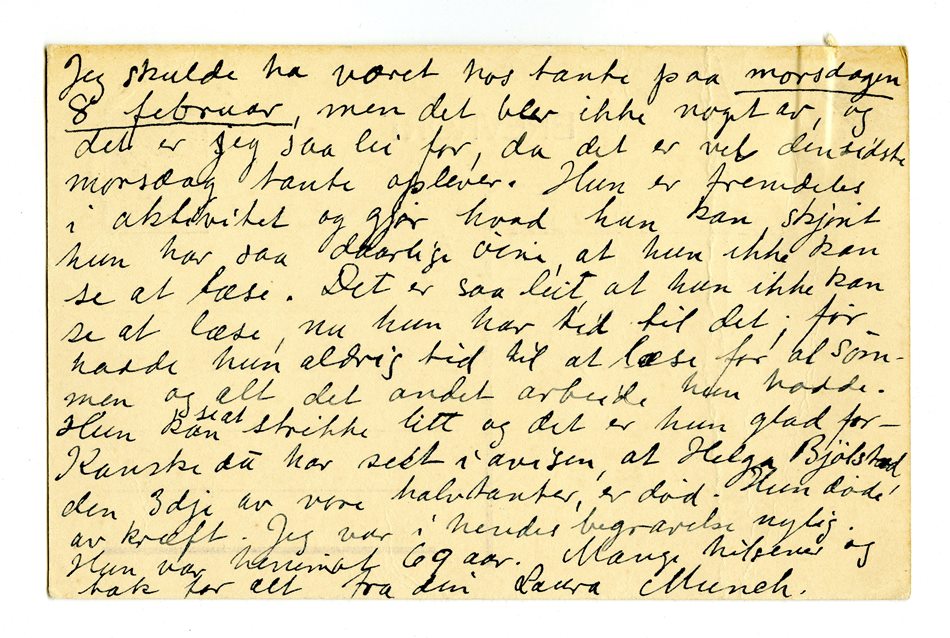 Jeg skulde ha været hos tante paa morsdagen
8 februar, men det blev ikke noget av, og
det er jeg saa lei for, da det er vel den sidste
morsdag tante oplever. Hun er fremdeles
i aktivitet og gjør hvad hun kan, skjønt
hun har saa daarlige øine, at hun ikke kan
se at læse. Det er saa leit, at hun ikke kan
se at læse, nu hun har tid til det; før
hadde hun aldrig tid til at læse for al søm-
men og alt det andet arbeide hun hadde.
Hun kan se at strikke litt og det er hun glad for –
Kanske du har sett i avisen, at Helga Bjølstad,
den 3dje av vore halvtanter, er død. Hun døde
av kræft. Jeg var i hendes begravelse nylig.
Hun var henimot 69 aar. Mange hilsener og
tak for alt fra din Laura Munch.